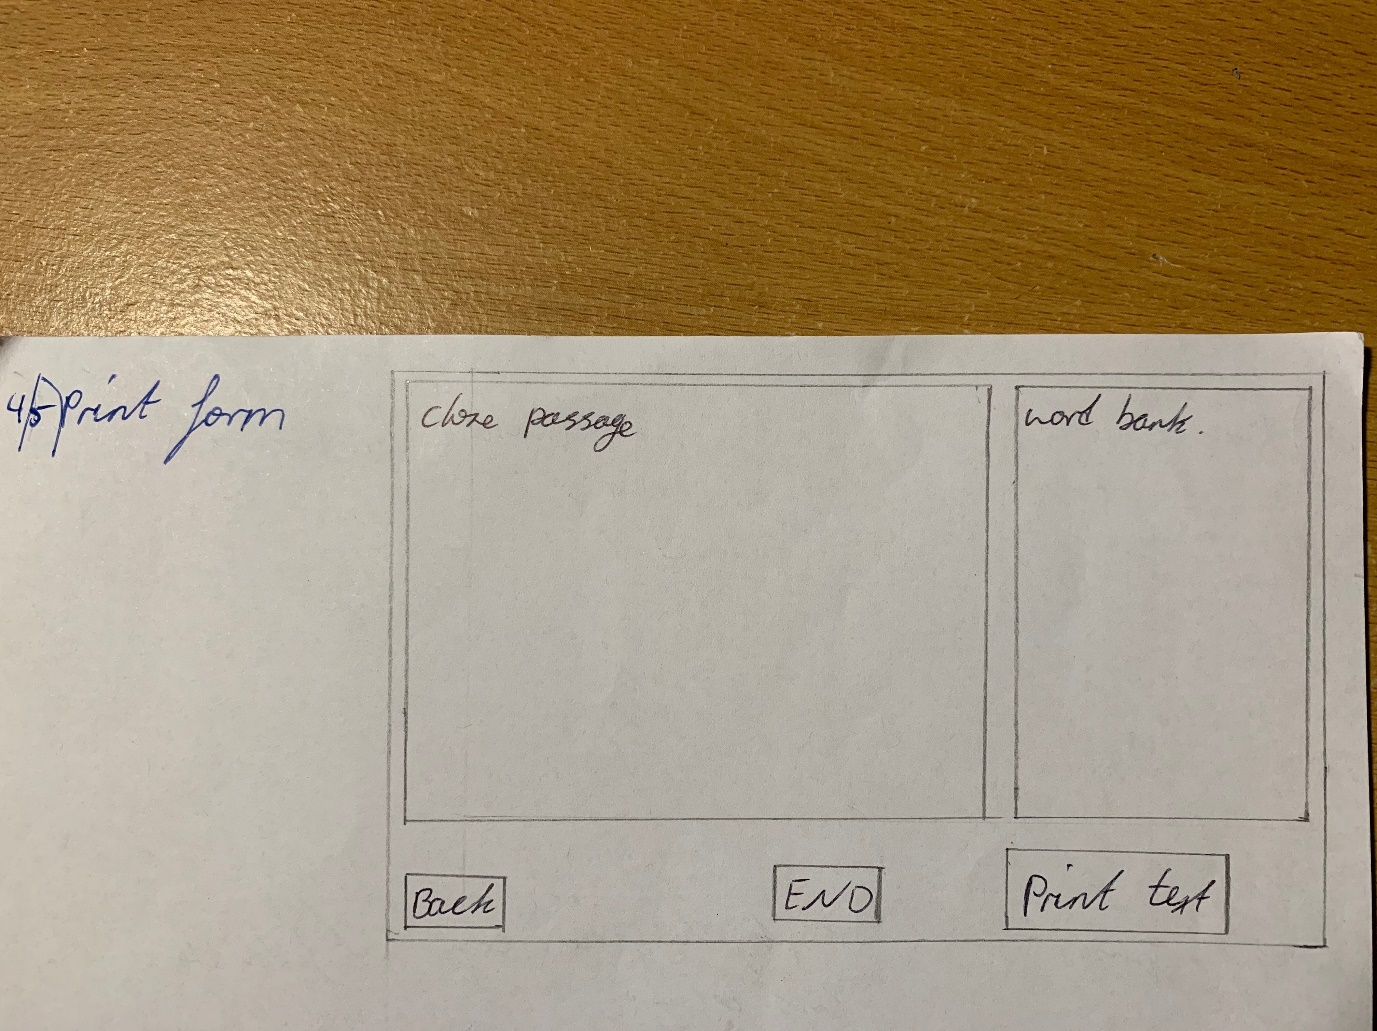 4/5) Print form
cloze passage
word bank.
Back
END
Print text